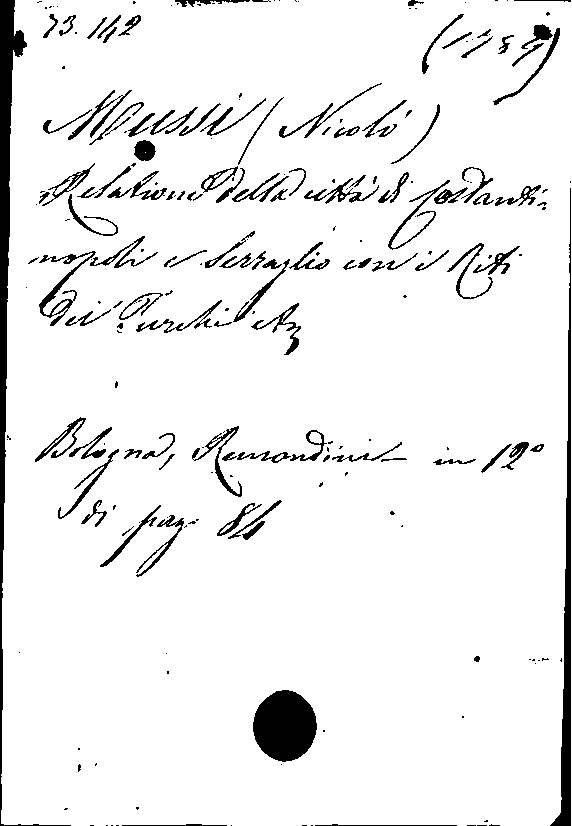 73. 142
Mussi (Nicolò)
Relatione della città di Costanti-
nopoli e Serraglio con i Riti
dei Turchi etc
Bologna, Remondini in 12°
di pag. 84